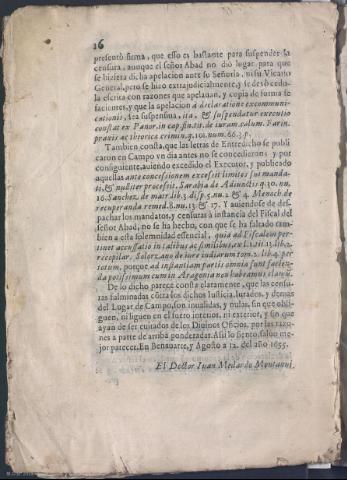 16
presentò firma, que esso es bastante para suspender la
censura, aunque el señor Abad no dio lugar para que
se hiziera dicha apelacion ante su Señoria, ni su Vicario
General, pero se hizo extrajudicialmente, y se
la escrita con razones que apelauan, y copia de forma se
facientes, y que la apelacion a declaratione excommuni-
cationis, sea suspensiua, ita, & suspendatur executio
constat ex Panor. in cap. fin. tit. de iuram. calum. Farin.
praxis ac theorica crimin. q. 101. num. 66. 3. p.
Tambien consta, que las letras de Entredicho se publi
caron en Campo vn dia antes no se concediesen: y por
consiguiente, auiendo excedido el Executor, y publicado
aquellas ante concessionem excessit limites sui manda-
ti, & nulliter processit. Sarabia de Adiunctis q. 30. nu.
16. Sanchez, de matr. lib. 3. disp. 5. nu. 2. & 4. Menoch. de
recuperanda remed. 8. nu. 13. & 17. Y auiendose de des-
pachar los mandatos, y censuras à instancia del Fiscal del
señor Abad, no se ha hecho, con que se ha faltado tam-
bien a esta solemnidad essencial, quia ad Fiscalem per-
tinet accussatio in talibus ac similibus, ex l. 1. tit. 13. lib. 2.
recopilar. Solorzano de iure indiarum tom. 2. lib. 4. per
totum, porque ad instantiam partis omnia sunt facien-
da potissimum cum in Aragonia non habeamus
De lo dicho parece consta claramente, que las censu-
ras fulminadas côtra los dichos Iusticia, Iurados, y demas
del Lugar de Campo, son inualidas, y nulas, sin que obli-
guen, ni liguen en el fuero interior, ni exterior, y sin que
ayan de ser euitados de los Diuinos Oficios, por las razo-
nes a parte de arriba ponderadas. Assi lo siento, saluo me-
jor parecer. En Benauarre, y Agosto a 12. del año 1655.
El Doctor Iuan Medardo